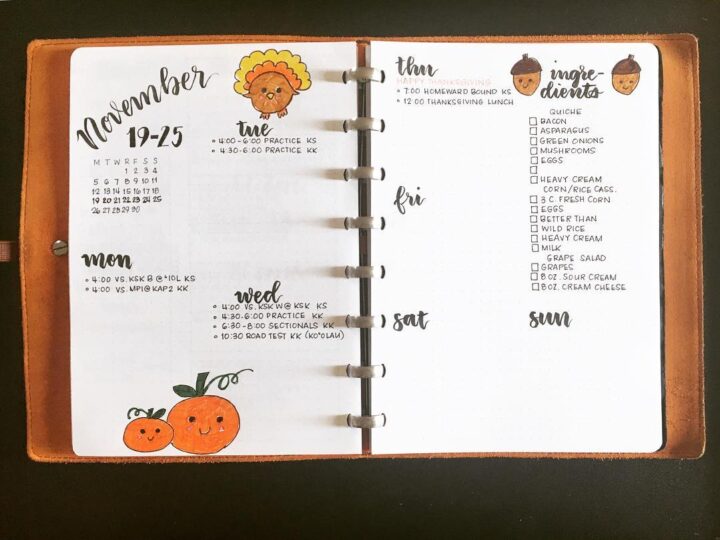 November
19-25
M T W R F S S
1 2 3 4
5 6 7 8 9 10 11
12 13 14 15 16 17 18
19 20 21 22 23 24 25
26 27 28 29 30
mon
4:00 VS. KSK B @ IOL KS
4:00 VS. MPI @ KAP2 KK
tue
4:00-6:00 PRACTICE KS
4:30-6:00 PRACTICE KK
wed
4:00 VS. KSK W @ KSK KS
4:30-6:00 PRACTICE KK
6:30-8:00 SECTIONALS KK
10:30 ROAD TEST KK (KO'OLAU)
thu
HAPPY THANKSGIVING
7:00 HOMEWARD BOUND KS
12:00 THANKSGIVING LUNCH
fri
sat
ingre-
dients
QUICHE
BACON
ASPARAGUS
GREEN ONIONS
MUSHROOMS
EGGS
HEAVY CREAM
CORN/RICE CASS.
3 C. FRESH CORN
EGGS
BETTER THAN
WILD RICE
HEAVY CREAM
MILK
GRAPE SALAD
GRAPES
8 OZ. SOUR CREAM
8 OZ. CREAM CHEESE
sun